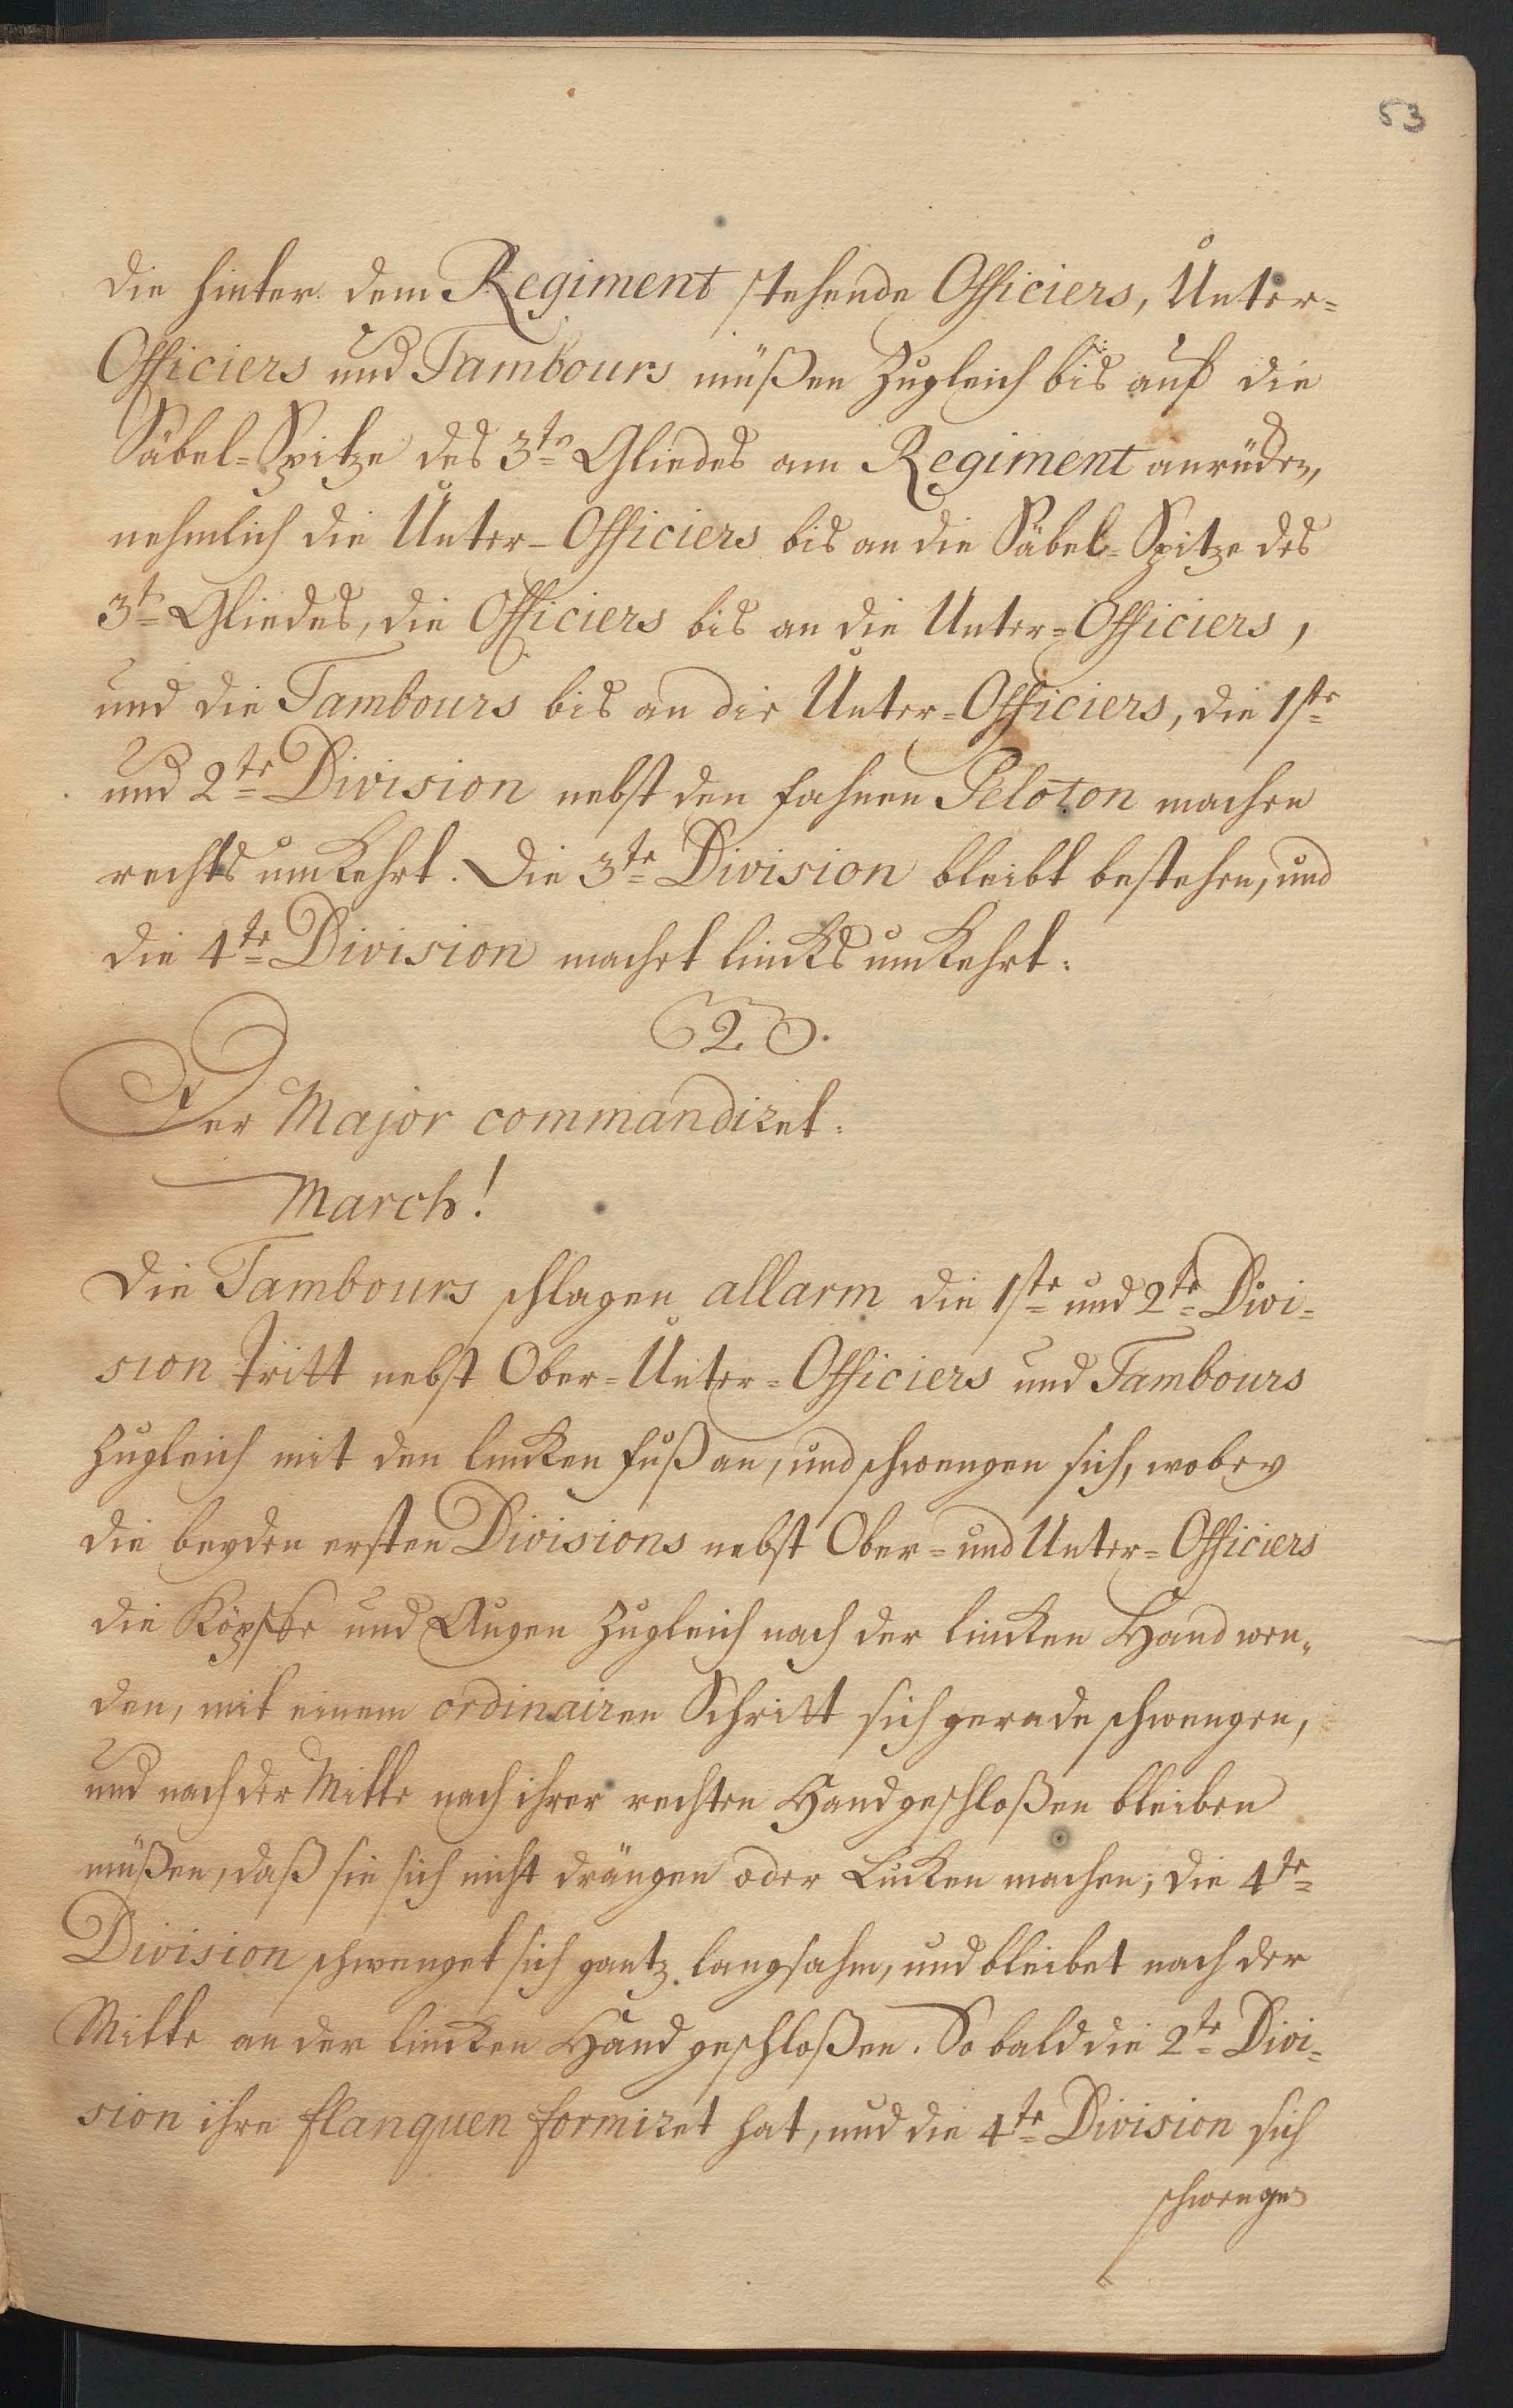 53
die hinter dem Regiment stehende Officiers, Unter-
Officiers und Tambours müßen zugleich bis auf die
Säbel-Spitze des 3ten Gliedes am Regiment anrücken,
nehmlich die Unter-Officiers bis an die Säbel-Spitze des
3ten Gliedes, die Officiers bis an die Unter-Officiers,
und die Tambours bis an die Unter-Officiers, die 1ste
und 2te Division nebst den fahnen Peloton machen
rechts umkehrt. Die 3te Division bleibt bestehen, und
die 4te Division machet lincks umkehrt.
2.
Der Major commandiret.
March!
Die Tambours schlagen allarm die 1ste und 2te Divi-
sion tritt nebst Ober-Unter-Officiers und Tambours
zugleich mit den lincken fuß an, und schwengen sich, wobey
die beyden ersten Divisions nebst Ober- und Unter-Officiers
die Köpffe und Augen zugleich nach der lincken Hand wen-
den, mit einem ordinairen Schritt sich gerade schwengen,
und nach der Mitte nach ihrer rechten Hand geschloßen bleiben
müßen, daß sie sich nicht drängen oder Lucken machen; die 4te
Division schwenget sich gantz langsahm, und bleibet nach der
Mitte an der lincken Hand geschloßen. So bald die 2te Divi-
sion ihre flanquen formiret hat, und die 4te Division sich
schwenge